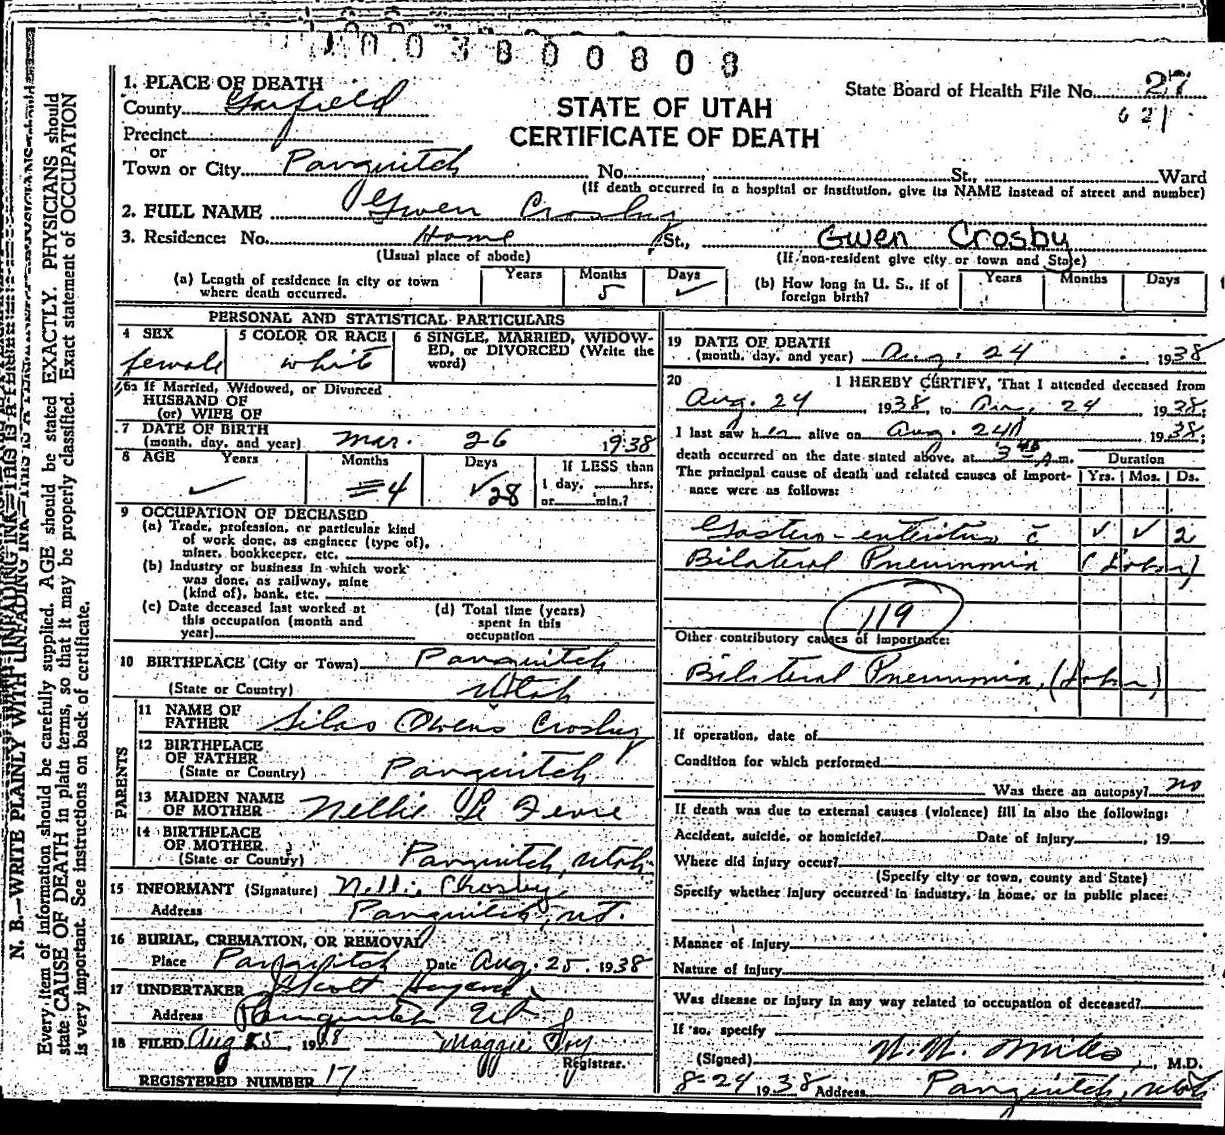 0 0 3 8 0 0 8 0 8
1. PLACE OF DEATH
County Garfield
Precinct
or
Town or City Panguitch No. St., Ward
(If death occurred in a hospital or institution, give its NAME instead of street and number)
STATE OF UTAH
CERTIFICATE OF DEATH
State Board of Health File No. 27
621
2. FULL NAME Gwen Crosby
3. Residence: No. Home St., Gwen Crosby
(Usual place of abode) (If non-resident give city or town and State)
(a) Length of residence in city or town where death occurred. Years Months 5 Days ✓
(b) How long in U. S., if of foreign birth? Years Months Days
PERSONAL AND STATISTICAL PARTICULARS
4 SEX female
5 COLOR OR RACE white
6 SINGLE, MARRIED, WIDOWED, or DIVORCED (Write the word)
6a If Married, Widowed, or Divorced
HUSBAND OF
(or) WIFE OF
7 DATE OF BIRTH
(month, day, and year) Mar. 26 1938
8 AGE Years ✓ Months 4 Days 28
If LESS than
1 day, hrs.
or min.?
9 OCCUPATION OF DECEASED
(a) Trade, profession, or particular kind
of work done, as engineer (type of),
miner, bookkeeper, etc.
(b) Industry or business in which work
was done, as railway, mine
(kind of), bank, etc.
(c) Date deceased last worked at
this occupation (month and
year)
(d) Total time (years)
spent in this
occupation
10 BIRTHPLACE (City or Town) Panguitch
(State or Country) Utah
PARENTS
11 NAME OF
FATHER Silas Owens Crosby
12 BIRTHPLACE
OF FATHER
(State or Country) Panguitch
13 MAIDEN NAME
OF MOTHER Nellie Le Fevre
14 BIRTHPLACE
OF MOTHER
(State or Country) Panguitch, Utah
15 INFORMANT (Signature) Nellie Crosby
Address Panguitch, Ut.
16 BURIAL, CREMATION, OR REMOVAL
Place Panguitch Date Aug. 25. 1938
17 UNDERTAKER
Address Panguitch Ut
18 FILED Aug 25, 1938 Maggie Foy
Registrar.
REGISTERED NUMBER 17
19 DATE OF DEATH
(month, day, and year) Aug. 24 1938
20 I HEREBY CERTIFY, That I attended deceased from
Aug. 24 1938, to Au. 24 1938;
I last saw her alive on Aug. 24 1938;
death occurred on the date stated above, at 3 45 A.m.
The principal cause of death and related causes of importance were as follows:
Duration
Yrs. Mos. Ds.
Gastero-enteritis c̄ ✓ ✓ 2
Bilateral Pneumonia (Lobar)
119
Other contributory causes of importance:
Bilateral Pneumonia, (Lobar)
If operation, date of
Condition for which performed
Was there an autopsy? no
If death was due to external causes (violence) fill in also the following:
Accident, suicide, or homicide? Date of injury, 19
Where did injury occur?
(Specify city or town, county and State)
Specify whether injury occurred in industry, in home, or in public place:
Manner of Injury
Nature of Injury
Was disease or injury in any way related to occupation of deceased?
If so, specify
(Signed) Miles, M.D.
8-24 1938 Address Panguitch, Utah
N. B.—WRITE PLAINLY WITH UNFADING INK—THIS IS A PERMANENT
Every item of information should be carefully supplied. AGE should be stated EXACTLY. PHYSICIANS should
state CAUSE OF DEATH in plain terms, so that it may be properly classified. Exact statement of OCCUPATION
is very important. See instructions on back of certificate.